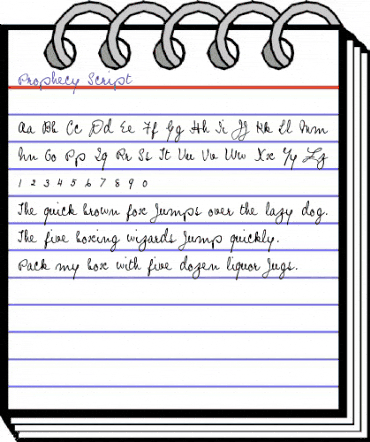 Prophecy Script
Aa Bb Cc Dd Ee Ff Gg Hh Ii Jj Kk Ll Mm
Nn Oo Pp Qq Rr Ss Tt Uu Vv Ww Xx Yy Zz
1 2 3 4 5 6 7 8 9 0
The quick brown fox jumps over the lazy dog.
The five boxing wizards jump quickly.
Pack my box with five dozen liquor jugs.